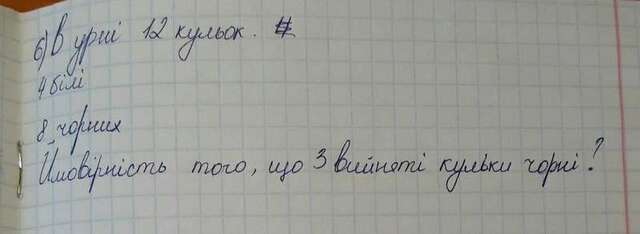 б) В урні 12 кульок.
4 білі
8 чорних
Ймовірність того, що 3 вийняті кульки чорні?